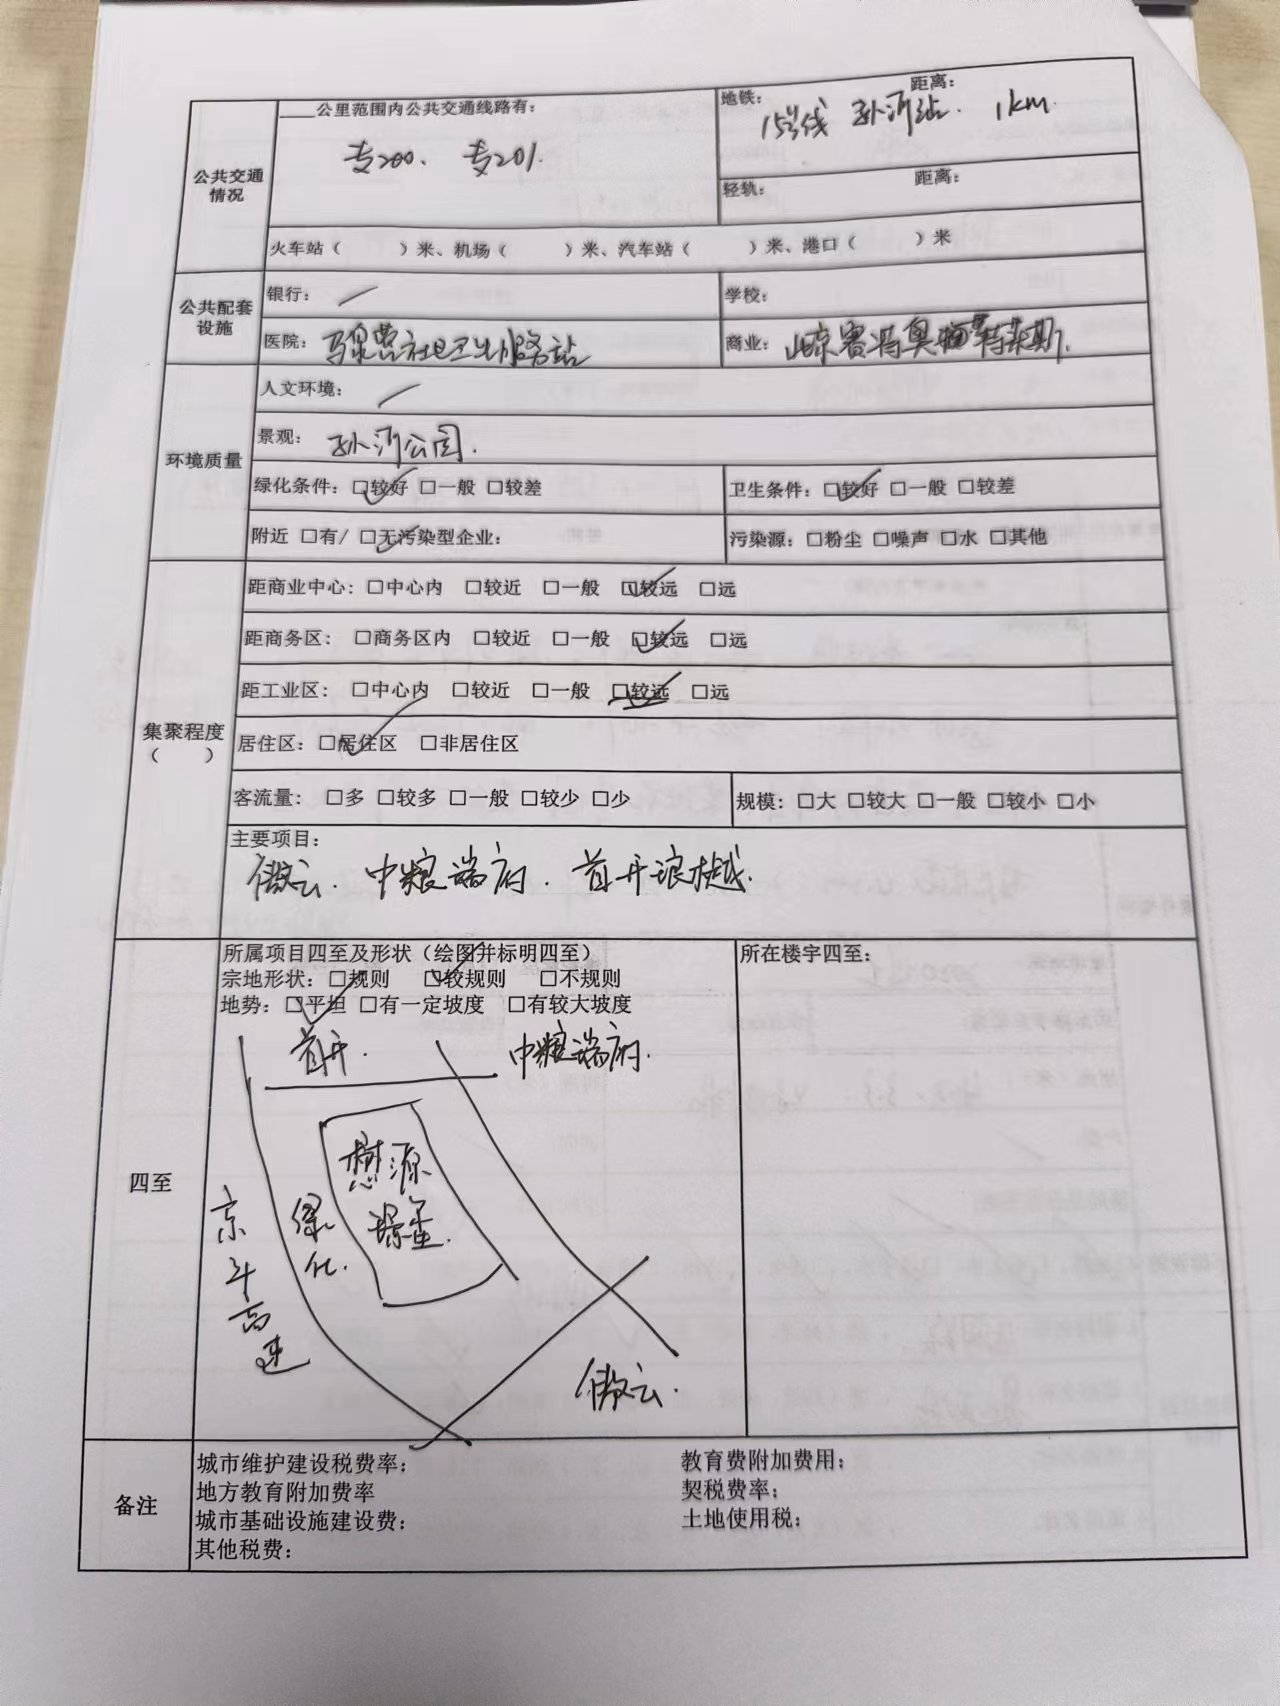 公共交通情况
____公里范围内公共交通线路有:
专200、 专201.
地铁: 距离:
15号线 孙河站. 1km.
轻轨: 距离:
火车站( )米、机场( )米、汽车站( )米、港口( )米
公共配套设施
银行: /
学校:
医院: 马泉营社区卫生服务站
商业: 北京赛特奥特莱斯.
环境质量
人文环境: /
景观: 孙河公园.
绿化条件: ☑较好 □一般 □较差
卫生条件: ☑较好 □一般 □较差
附近 □有/ ☑无污染型企业:
污染源: □粉尘 □噪声 □水 □其他
集聚程度( )
距商业中心: □中心内 □较近 □一般 ☑较远 □远
距商务区: □商务区内 □较近 □一般 ☑较远 □远
距工业区: □中心内 □较近 □一般 ☑较远 □远
居住区: ☑居住区 □非居住区
客流量: □多 □较多 □一般 □较少 □少
规模: □大 □较大 □一般 □较小 □小
主要项目:
傲云. 中粮瑞府. 首开琅樾.
四至
所属项目四至及形状(绘图并标明四至)
宗地形状: □规则 ☑较规则 □不规则
地势: ☑平坦 □有一定坡度 □有较大坡度
所在楼宇四至:
首开.
中粮瑞府.
源
绿化.
京平高速
傲云.
备注
城市维护建设税费率:
教育费附加费用:
地方教育附加费率
契税费率:
城市基础设施建设费:
土地使用税:
其他税费: